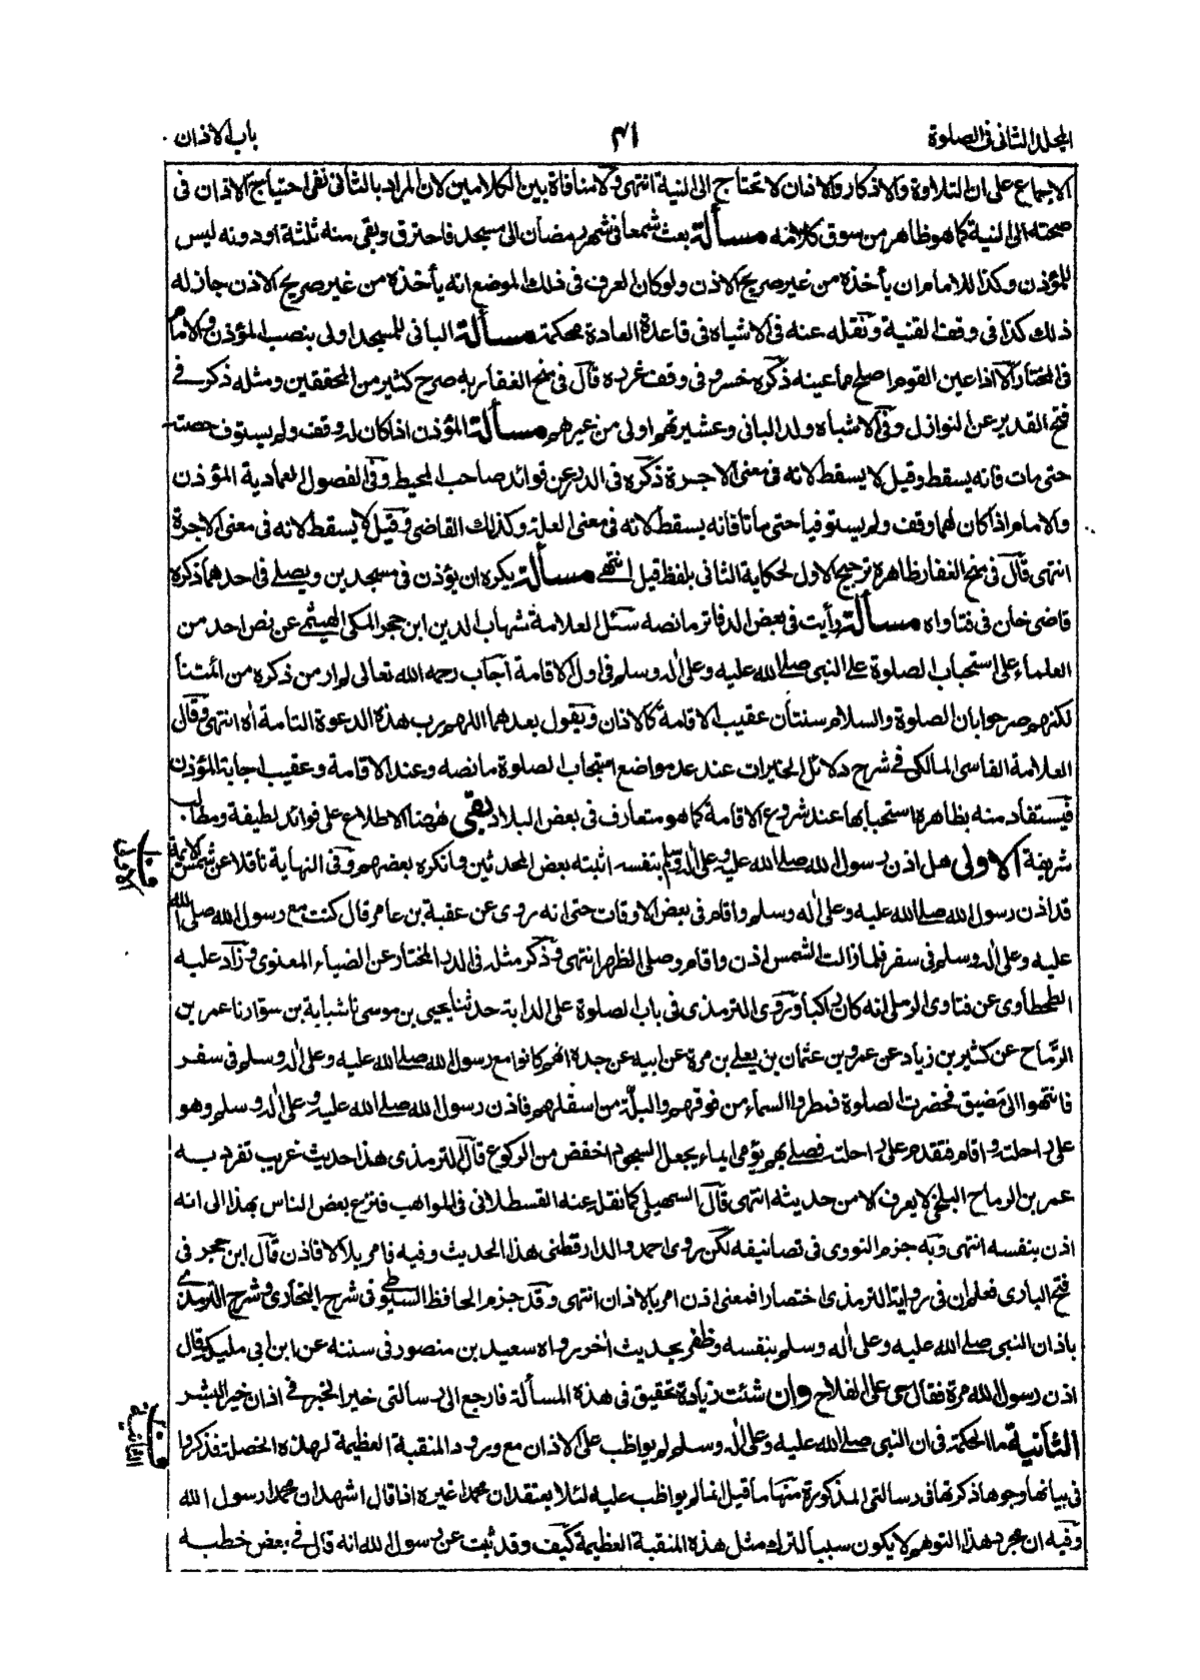 المجلد الثانى فى الصلوة
٤١
باب الاذان
الاجماع على ان التلاوة والاذكار والاذان لا تحتاج الى النية انتهى ولا منافاة بين الكلامين لان المراد بالثانى نفى احتياج الاذان فى
صحته الى النية كما هو ظاهر من سوق كلامه مسألة بعث شمعا فى شهر رمضان الى مسجد فاحترق وبقى منه ثلثة او دونه ليس
للمؤذن وكذا للامام ان يأخذه من غير صريح الاذن ولو كان العرف فى ذلك الموضع انه يأخذه من غير صريح الاذن جاز له
ذلك كذا فى وقف القنية ونقله عنه فى الاشباه فى قاعدة العادة محكمة مسألة البانى للمسجد اولى بنصب المؤذن والامام
فى المختار الا اذا عين القوم اصلح مما عينه ذكره خسرو فى وقف غرره قال فى منح الغفار به صرح كثير من المحققين ومثله ذكر فے
فتح القدير عن النوازل وفى الاشباه ولد البانى وعشيرتهم اولى من غيرهم مسألة المؤذن اذا كان له وقف ولم يستوف حصته
حتى مات فانه يسقط وقيل لا يسقط لانه فى معنى الاجرة ذكره فى الدرر عن فوائد صاحب المحيط وفى الفصول العمادية المؤذن
والامام اذا كان لهما وقف ولم يستوفيا حتى ماتا فانه يسقط لانه فى معنى الصلة وكذلك القاضى وقيل لا يسقط لانه فى معنى الاجرة
انتهى قال فى منح الغفار ظاهره ترجيح الاول لحكاية الثانى بلفظ قيل انتهى مسألة يكره ان يؤذن فى مسجدين ويصلے فى احدهما ذكره
قاضى خان فى فتاواه مسألة رأيت فى بعض الدفاتر ما نصه سئل العلامة شهاب الدين ابن حجر المكى الهيثمے عن نص احد من
العلماء على استحباب الصلوة على النبى صلے الله عليه وعلى اله وسلم فى اول الاقامة اجاب رحمه الله تعالى لم ار من ذكره من ائمتنا
لكنهم صرحوا بان الصلوة والسلام سنتان عقيب الاقامة كالاذان ويقول بعدهما اللهم رب هذه الدعوة التامة اه انتهى وقال
العلامة الفاسى المالكى فے شرح دلائل الخيرات عند عد مواضع استحباب الصلوة ما نصه وعند الاقامة وعقيب اجابة المؤذن
فيستفاد منه بظاهره استحبابها عند شروع الاقامة كما هو متعارف فى بعض البلاد بقى ههنا الاطلاع على فوائد لطيفة ومطالب
شريفة الاولى هل اذن رسول الله صلے الله عليه وعلى اله وسلم بنفسه اثبته بعض المحدثين وانكره بعضهم وفى النهاية ناقلا عن شمس الائمة
قد اذن رسول الله صلے الله عليه وعلى اله وسلم واقام فى بعض الاوقات حتى انه روى عن عقبة بن عامر قال كنت مع رسول الله صلے الله
عليه وعلى اله وسلم فى سفر فلما زالت الشمس اذن واقام وصلى الظهر انتهى وذكر مثله فى الدر المختار عن الضياء المعنوى وزاد عليه
الطحطاوى عن فتاوى الرملى انه كان راكبا وروى الترمذى فى باب الصلوة على الدابة حدثنا يحيى بن موسى نا شبابة بن سوار نا عمر بن
الرماح عن كثير بن زياد عن عمرو بن عثمان بن يعلے بن مرة عن ابيه عن جده انهم كانوا مع رسول الله صلے الله عليه وعلى اله وسلم فى سفر
فانتهوا الى مضيق فحضرت الصلوة فمطروا السماء من فوقهم والبلة من اسفلهم فاذن رسول الله صلے الله عليه وعلى اله وسلم وهو
على راحلته واقام فتقدم على راحلته فصلے بهم يؤمى ايماء يجعل السجود اخفض من الركوع قال الترمذى هذا حديث غريب تفرد به
عمر بن الرماح البلخى لا يعرف الا من حديثه انتهى قال السهيلى كما نقله عنه القسطلانى فى المواهب فنزع بعض الناس بهذا الى انه
اذن بنفسه انتهى وبه جزم النووى فى تصانيفه لكن روى احمد والدارقطنى هذا الحديث وفيه فامر بلالا فاذن قال ابن حجر فى
فتح البارى فعلم ان فى رواية الترمذى اختصارا فمعنى اذن امر بالاذان انتهى وقد جزم الحافظ السيوطى فى شرح البخارى وشرح الترمذے
باذان النبى صلے الله عليه وعلى اله وسلم بنفسه وظفر بحديث اخر رواه سعيد بن منصور فى سننه عن ابن ابى مليكة قال
اذن رسول الله مرة فقال حى على الفلاح وان شئت زيادة تحقيق فى هذه المسألة فارجع الى رسالتى خير الخبر فے اذان خير البشر
الثانية ما الحكمة فى ان النبى صلے الله عليه وعلى اله وسلم لم يواظب على الاذان مع ورود المنقبة العظيمة لهذه الخصلة فذكروا
فى بيانها وجوها ذكرتها فى رسالتى المذكورة منها ما قيل انما لم يواظب عليه لئلا يعتقد ان محمدا غيره اذا قال اشهد ان محمدا رسول الله
وفيه ان مجرد هذا التوهم لا يكون سببا لترك مثل هذه المنقبة العظيمة كيف وقد ثبت عن رسول الله انه قال فے بعض خطبه